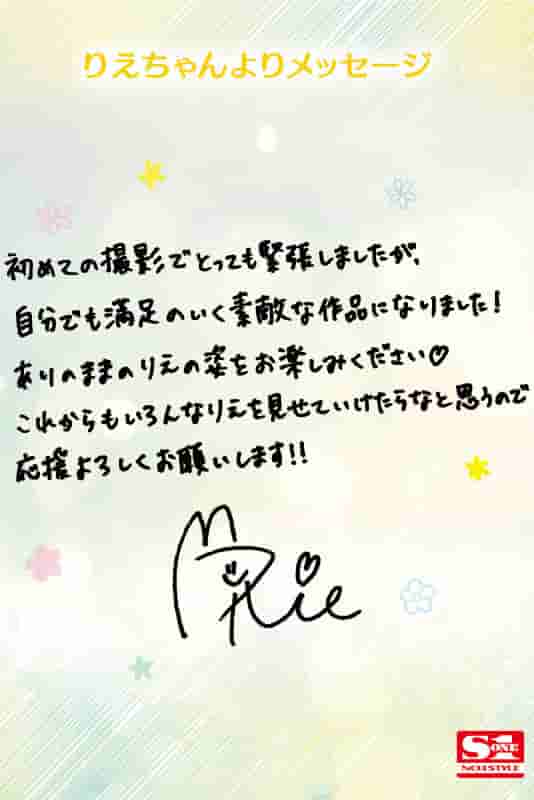 りえちゃんよりメッセージ
初めての撮影でとっても緊張しましたが、
自分でも満足のいく素敵な作品になりました!
ありのままのりえの姿をお楽しみください♡
これからもいろんなりえを見せていけたらなと思うので
応援よろしくお願いします!!
Rie
S1
ONE
NO.1 STYLE